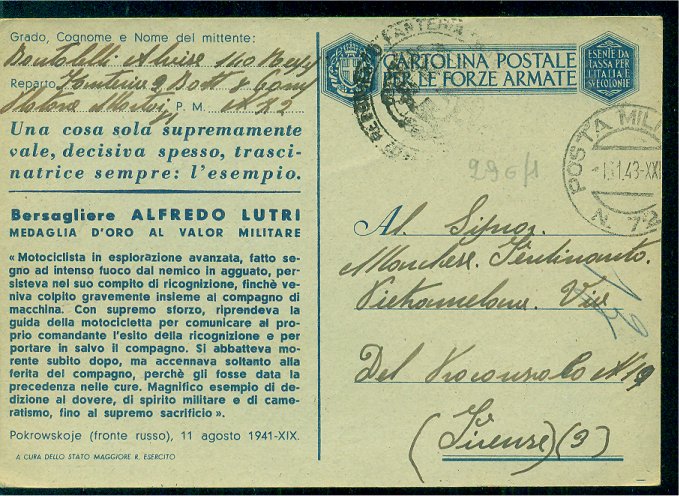 Grado, Cognome e Nome del mittente:
Reparto Fanteria 2 Batt 8 Comp
P. M. N 72
Una cosa sola supremamente
vale, decisiva spesso, trasci-
natrice sempre: l'esempio.
Bersagliere ALFREDO LUTRI
MEDAGLIA D'ORO AL VALOR MILITARE
« Motociclista in esplorazione avanzata, fatto se-
gno ad intenso fuoco dal nemico in agguato, per-
sisteva nel suo compito di ricognizione, finchè ve-
niva colpito gravemente insieme al compagno di
macchina. Con supremo sforzo, riprendeva la
guida della motocicletta per comunicare al pro-
prio comandante l'esito della ricognizione e per
portare in salvo il compagno. Si abbatteva mo-
rente subito dopo, ma accennava soltanto alla
ferita del compagno, perchè gli fosse data la
precedenza nelle cure. Magnifico esempio di de-
dizione al dovere, di spirito militare e di came-
ratismo, fino al supremo sacrificio ».
Pokrowskoje (fronte russo), 11 agosto 1941-XIX.
A CURA DELLO STATO MAGGIORE R. ESERCITO
FANTERIA
CARTOLINA POSTALE
PER LE FORZE ARMATE
ESENTE DA
TASSA PER
L'ITALIA E
SVE COLONIE
POSTA MILI
.1.43-XXI
N. 72
29G/1
Al Signor
Marchese Ferdinando
Via
Del Proconsolo N 19
(Firenze) (9)